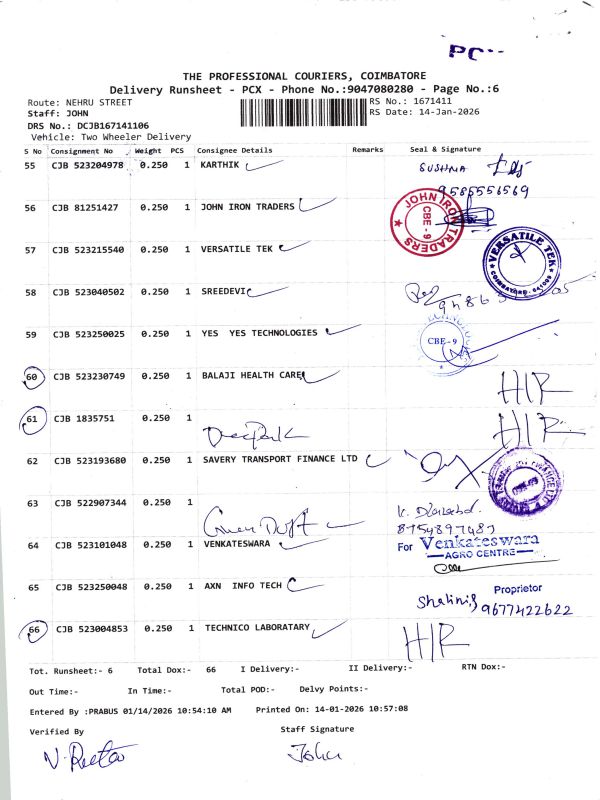 PC
THE PROFESSIONAL COURIERS, COIMBATORE
Delivery Runsheet - PCX - Phone No.:9047080280 - Page No.:6
Route: NEHRU STREET RS No.: 1671411
Staff: JOHN RS Date: 14-Jan-2026
DRS No.: DCJB167141106
Vehicle: Two Wheeler Delivery
S No Consignment No Weight PCS Consignee Details Remarks Seal & Signature
55 CJB 523204978 0.250 1 KARTHIK SUSHMA
9585556569
56 CJB 81251427 0.250 1 JOHN IRON TRADERS JOHN IRON TRADERS CBE - 9
57 CJB 523215540 0.250 1 VERSATILE TEK VERSATILE TEK
58 CJB 523040502 0.250 1 SREEDEVI
59 CJB 523250025 0.250 1 YES YES TECHNOLOGIES CBE - 9
60 CJB 523230749 0.250 1 BALAJI HEALTH CARE H/R
61 CJB 1835751 0.250 1 H/R
Deepak
62 CJB 523193680 0.250 1 SAVERY TRANSPORT FINANCE LTD
63 CJB 522907344 0.250 1
8754897483
64 CJB 523101048 0.250 1 VENKATESWARA For Venkateswara
AGRO CENTRE
65 CJB 523250048 0.250 1 AXN INFO TECH Proprietor
Shalini 9677422622
66 CJB 523004853 0.250 1 TECHNICO LABORATARY H/R
Tot. Runsheet:- 6 Total Dox:- 66 I Delivery:- II Delivery:- RTN Dox:-
Out Time:- In Time:- Total POD:- Delvy Points:-
Entered By :PRABUS 01/14/2026 10:54:10 AM Printed On: 14-01-2026 10:57:08
Verified By Staff Signature
John